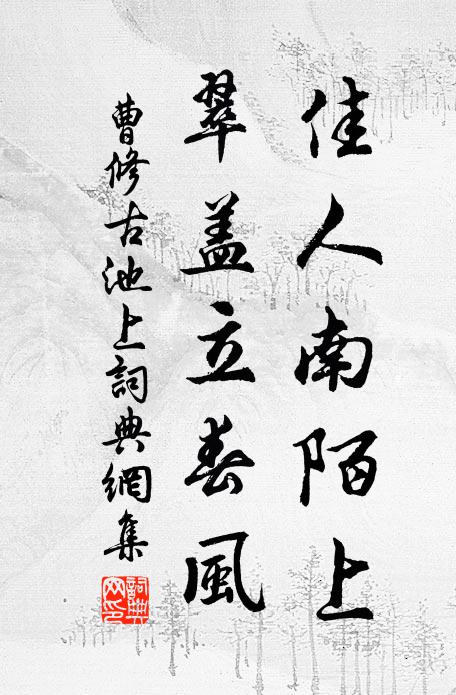 佳人南陌上
翠盖立春風
曹修古池上詞典網集
詞典網印